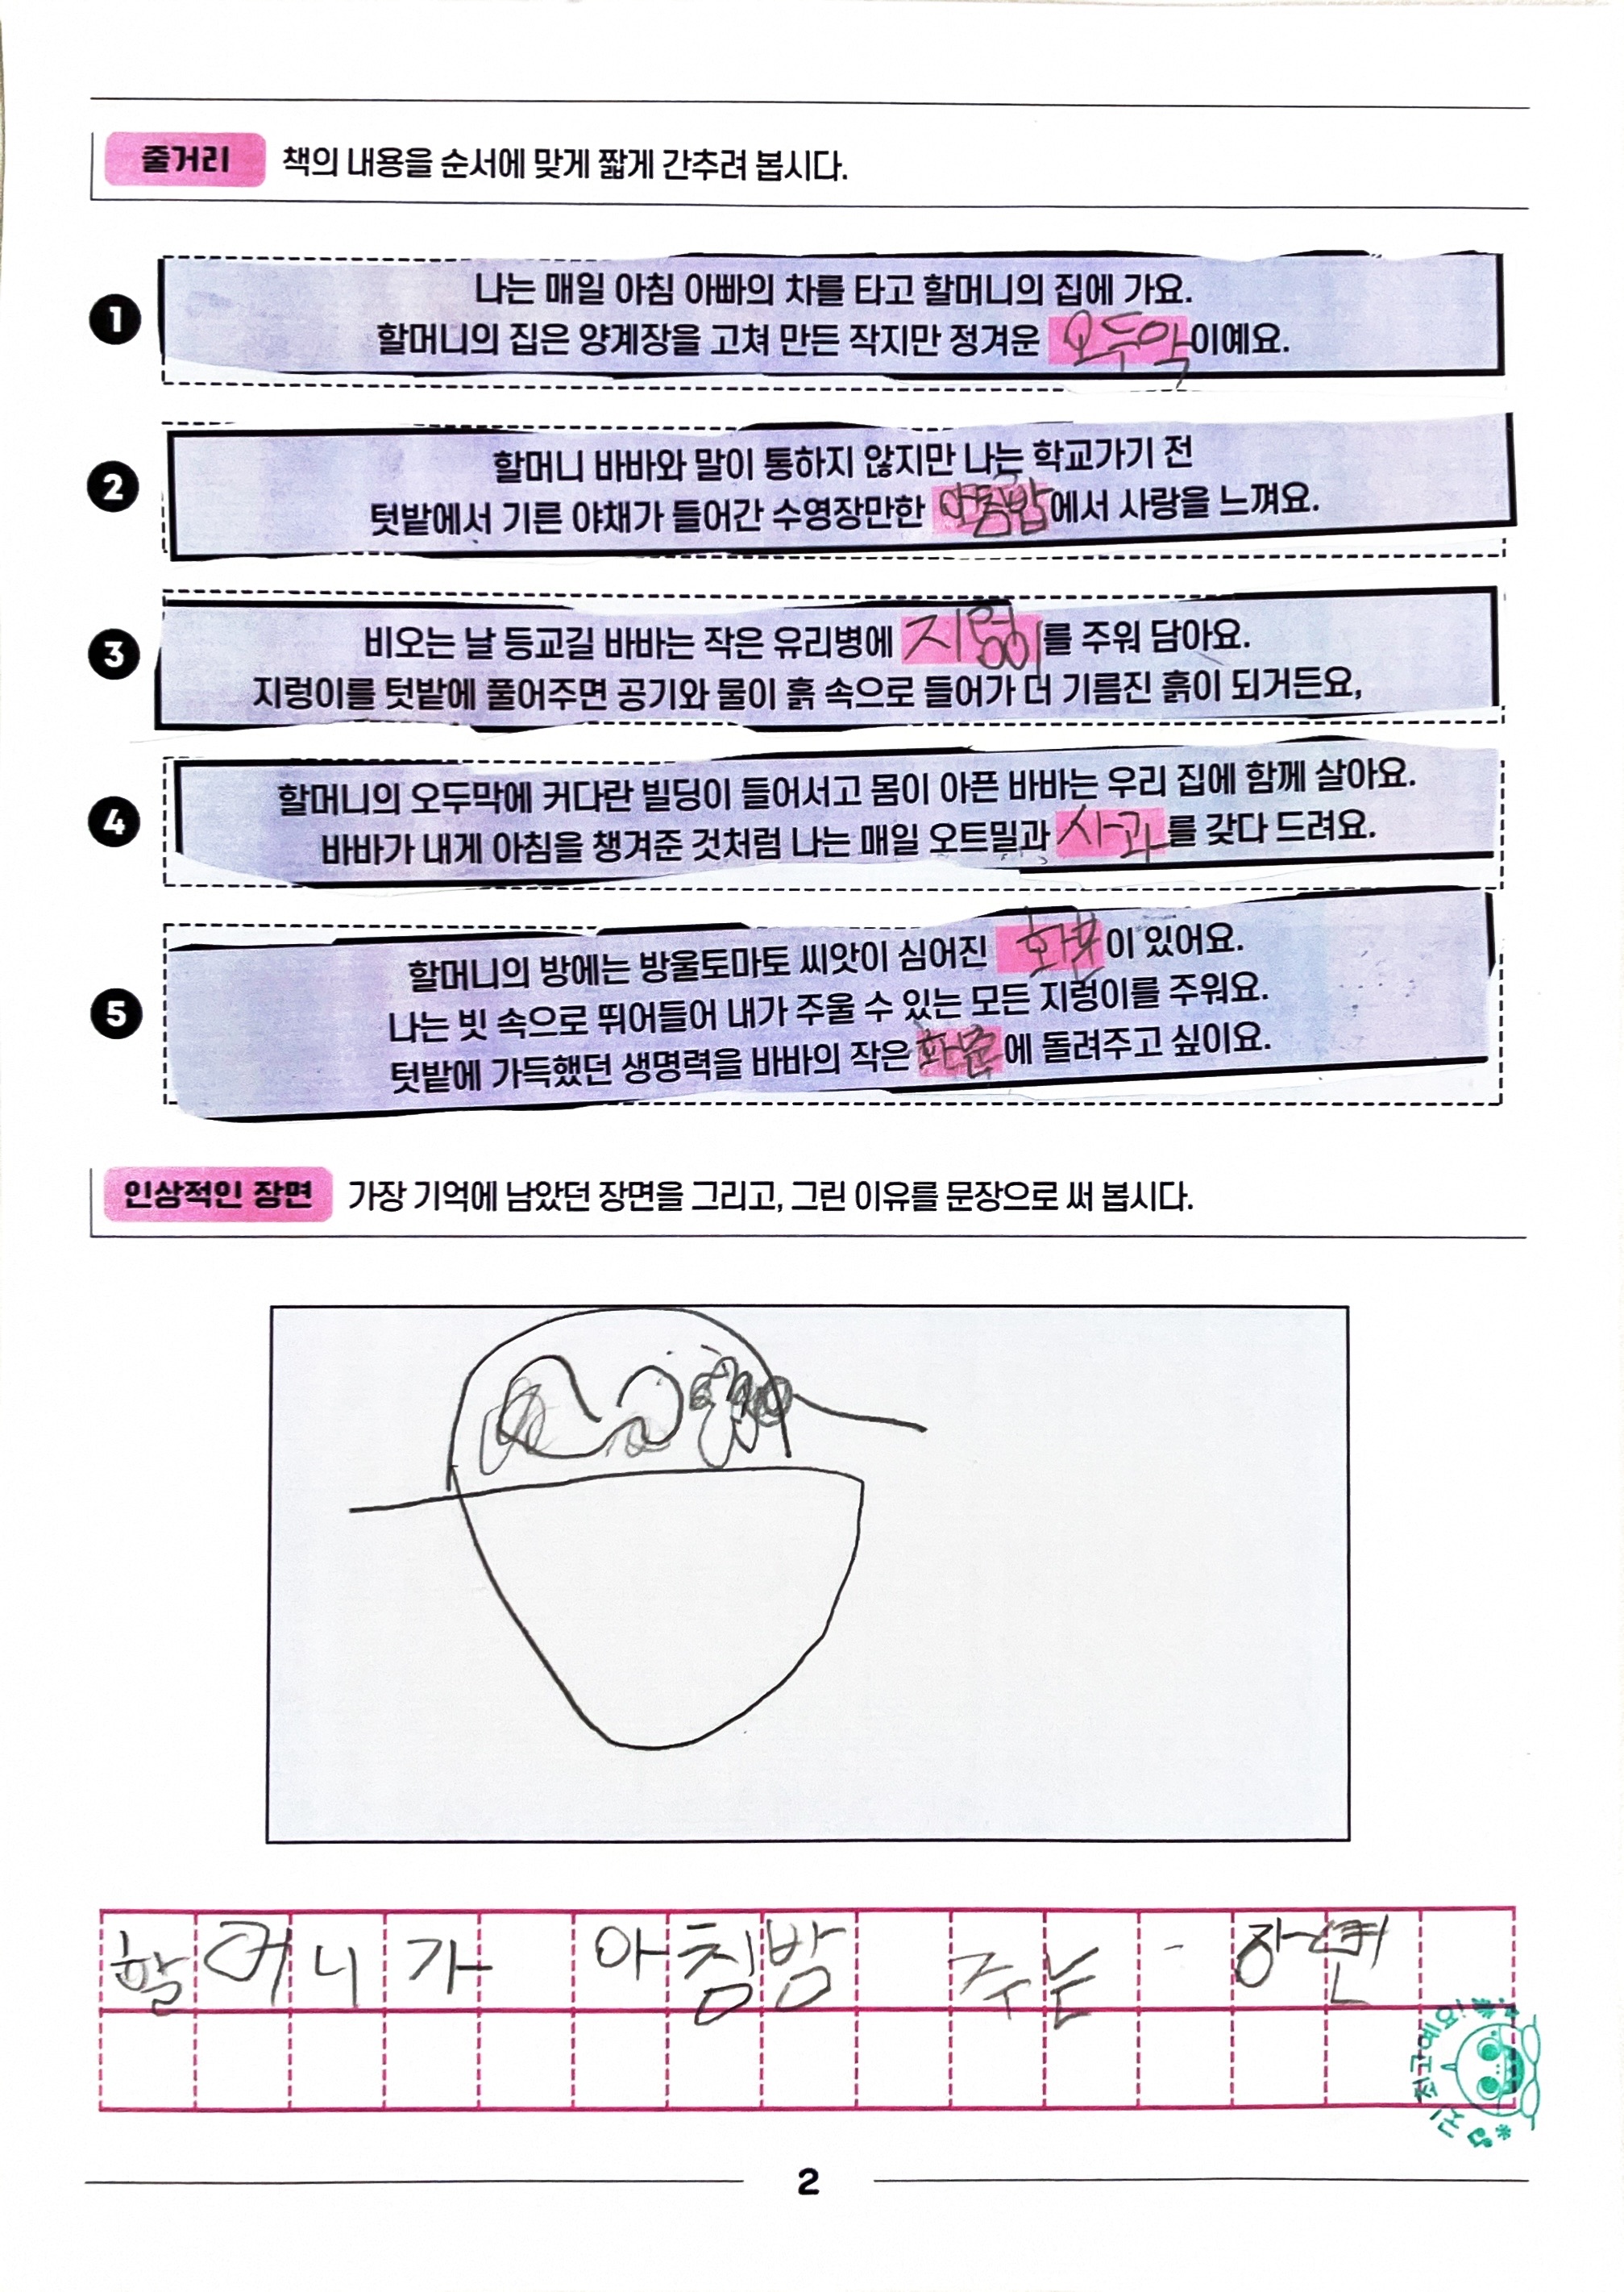 줄거리 책의 내용을 순서에 맞게 짧게 간추려 봅시다.
1 나는 매일 아침 아빠의 차를 타고 할머니의 집에 가요.
할머니의 집은 양계장을 고쳐 만든 작지만 정겨운 오두막이예요.
2 할머니 바바와 말이 통하지 않지만 나는 학교가기 전
텃밭에서 기른 야채가 들어간 수영장만한 아침밥에서 사랑을 느껴요.
3 비오는 날 등교길 바바는 작은 유리병에 지렁이를 주워 담아요.
지렁이를 텃밭에 풀어주면 공기와 물이 흙 속으로 들어가 더 기름진 흙이 되거든요,
4 할머니의 오두막에 커다란 빌딩이 들어서고 몸이 아픈 바바는 우리 집에 함께 살아요.
바바가 내게 아침을 챙겨준 것처럼 나는 매일 오트밀과 사과를 갖다 드려요.
5 할머니의 방에는 방울토마토 씨앗이 심어진 화분이 있어요.
나는 빗 속으로 뛰어들어 내가 주울 수 있는 모든 지렁이를 주워요.
텃밭에 가득했던 생명력을 바바의 작은 화분에 돌려주고 싶이요.
인상적인 장면 가장 기억에 남았던 장면을 그리고, 그린 이유를 문장으로 써 봅시다.
할머니가 아침밥 주는 장면
2